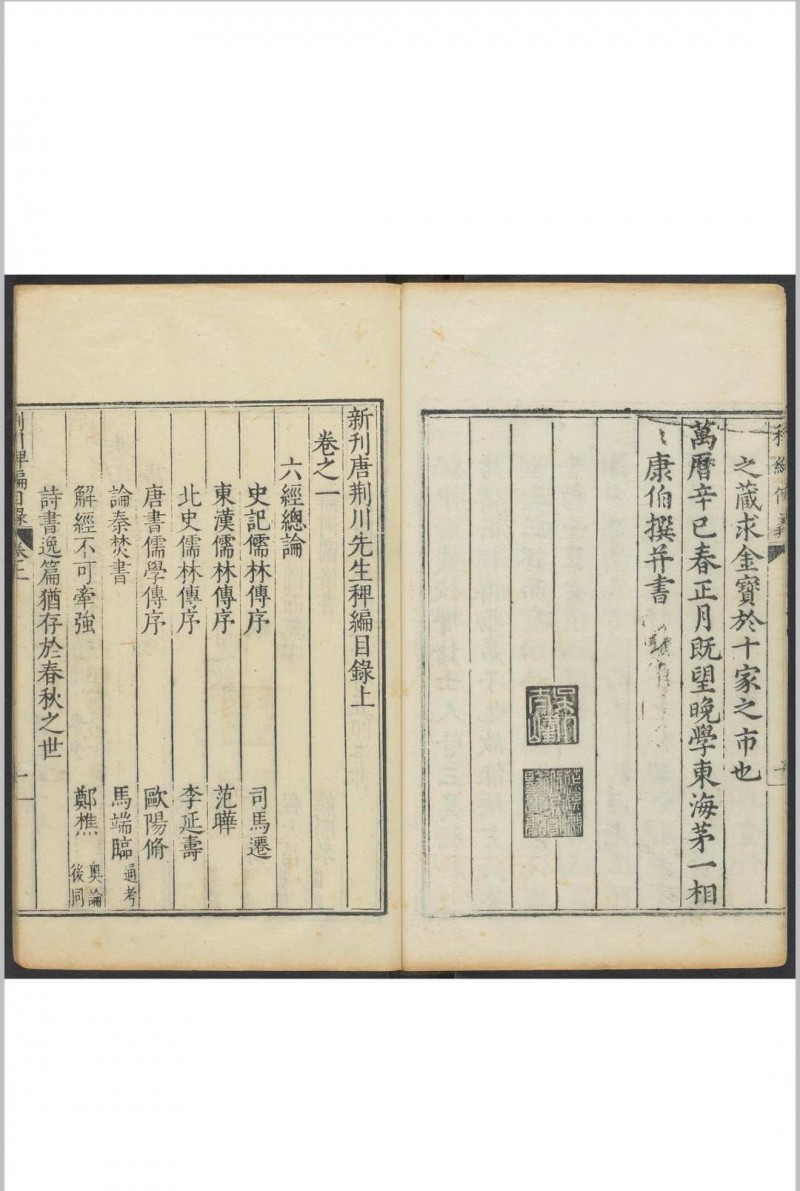 之藏求金寶於十家之市也
萬曆辛巳春正月旣望晚學東海茅一相
康伯撰并書
新刋唐荆川先生稗編目錄上
卷之一
六經總論
史記儒林傳序 司馬遷
東漢儒林傳序 范曄
北史儒林傳序 李延壽
唐書儒學傳序 歐陽脩
論秦焚書 馬端臨 通考
解經不可牽強 鄭樵 奥論後同
詩書逸篇猶存於春秋之世
荆川稗編目錄 卷上 一